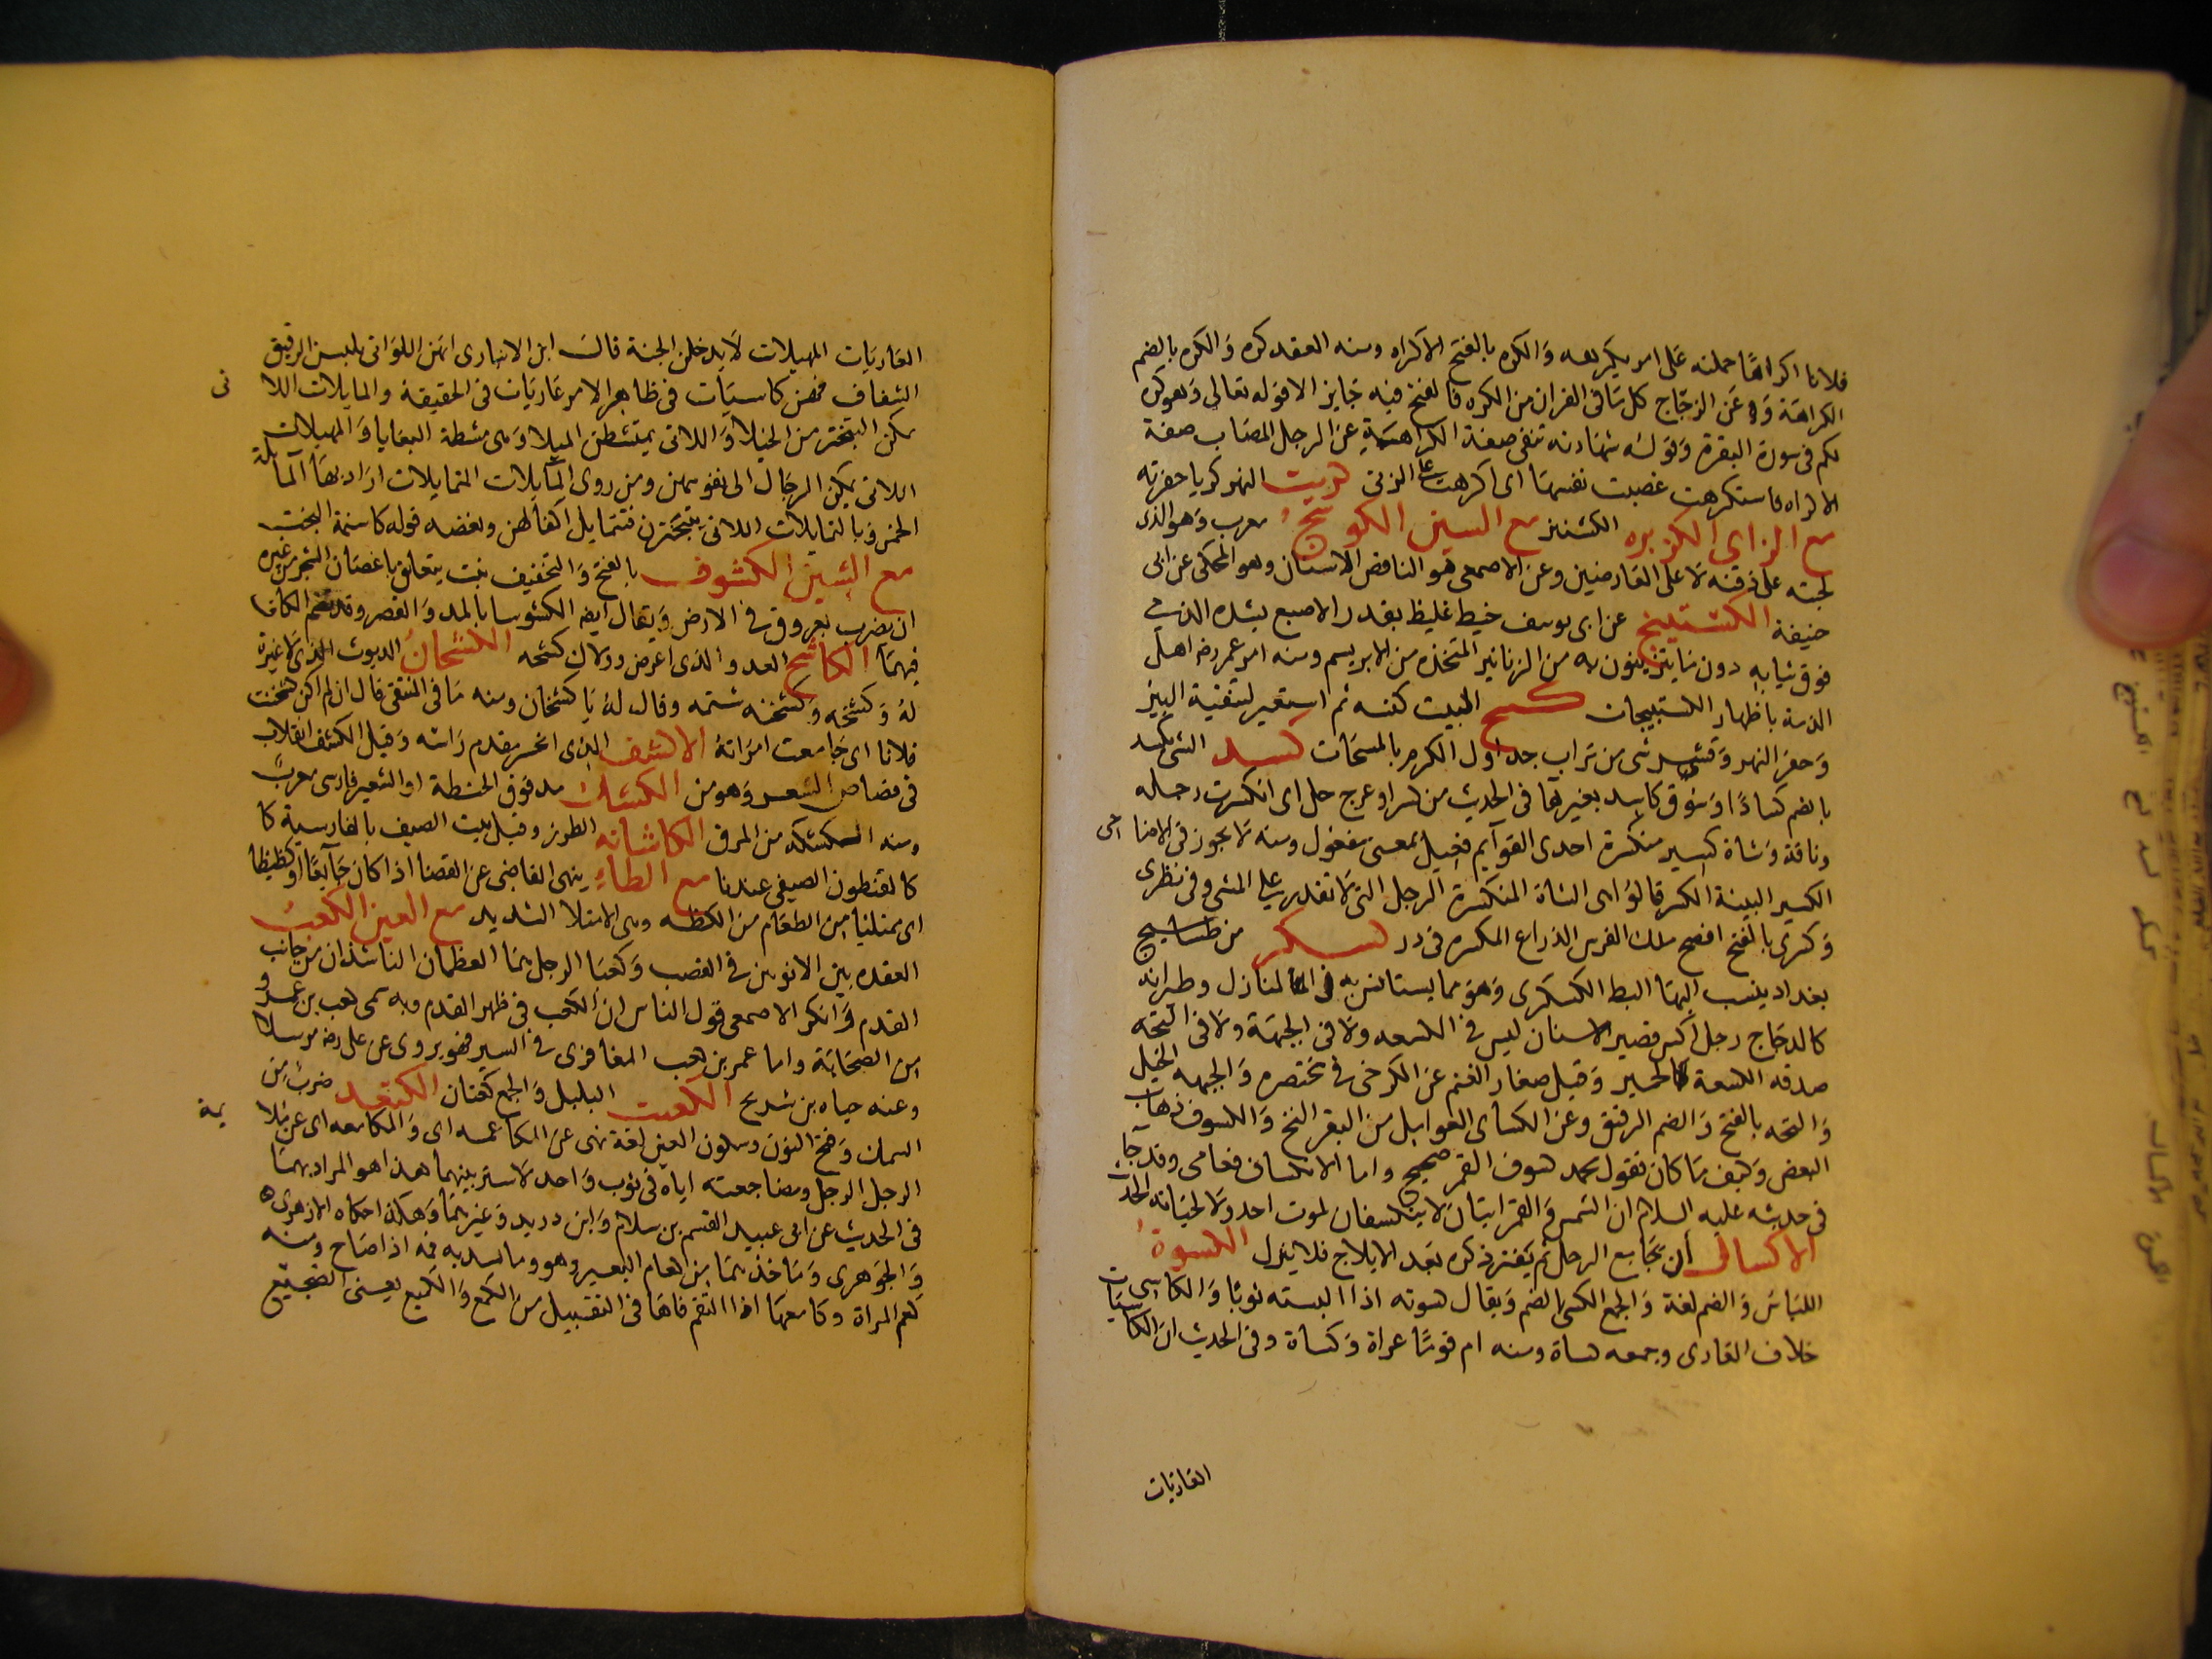 فلانا اكراهًا حملته على امر يكرهه والكره بالفتح الاكراه ومنه العقد كره والكره بالضم
الكراهة وعن الزجّاج كل ما في القران من الكره فالفتح فيه جايز الا قوله تعالى وهو كره
لكم في سورة البقرة وقوله شهادته تنفى صفة الكراهية عن الرجل المصاب صفة
الاكراه فاستكرهت غصبت نفسها اى اكرهت على الزنى كريت النهر كريا حفرته
مع الزاى الكزبره الكشنيز مع السين الكوسج معرب وهو الذى
لحيته على ذقنه لا على العارضين وعن الاصمعى هو الناقص الاسنان وهو المحكى عن ابى
حنيفة الكستيج عن ابى يوسف خيط غليظ بقدر الاصبع يشده الذمى
فوق ثيابه دون ما يتزينون به من الزنانير المتخذه من الابريسم ومنه امر عمر رضه اهل
الذمة باظهار الكستيجات كسح البيت كنسه ثم استعير لتنقية البير
وحفر النهر وقشر شى من تراب جداول الكرم بالمسحات كسد الشى يكسد
بالضم كسادًا وسوق كاسد بغير هآ فى الحديث من كسر او عرج حل اى انكسرت رجله
وناقة وشاة كسير منكسرة احدى القوآيم فعيل بمعنى مفعول ومنه لا يجوز فى الاضا حى
الكسير البينة الكسر قالوا هى الشاة المنكسرة الرجل التى لا تقدر على المشى وفى نظرى
وكسرى بالفتح افصح ملك الفرس الذراع المكسره فى در كسكر من طساسيج
بغداد ينسب اليها البط الكسكرى وهو مما يستانس به فى المنازل وطيرانه
كالدجاج رجل اكس قصير الاسنان ليس فى الكسعه ولا فى الجبهة ولا فى النخه
صدقه الكسعة الحمير وقيل صغار الغنم عن الكرخى فى مختصره والجبهه الخيل
والنخه بالفتح والضم الرقيق وعن الكسأى العوامل من البقر النخ والكسوف ذهاب
البعض وكيف ما كان فقول محمد كسوف القمر صحيح واما الانكساف فعامى وقد جآ
فى حديثه عليه السلام ان الشمس والقمر ايتان لا ينكسفان لموت احد ولا لحياته الحديث
الاكسال ان يجامع الرجل ثم يفتر ذكره بعد الايلاج فلا ينزل الكسوة
اللباس والضم لغة والجمع الكسى بالضم ويقال كسوته اذا البسته ثوبًا والكاسى
خلاف العارى وجمعه كساة ومنه ام قومًا عراة وكساة وفى الحديث ان الكاسيات
العاريات
العاريات المميلات لا يدخلن الجنة قال ابن الانبارى انهن اللواتى يلبسن الرقيق
الشفاف فهن كاسيات فى ظاهر الامر عاريات فى الحقيقة والمايلات اللا تى
يملن البختر من الخيلا واللاتى يمتشطن الميلا وهى مشطة البغايا والمميلات
اللاتى يملن الرجال الى نفوسهن ومن روى المآيلات المتمايلات اراد بها المآيلة
الخمر وبالمتمايلات اللاتى يتبخترن فتتمايل اكفالهن وبعضه قوله كاسنمة البخت
مع الشين الكشوف بالفتح والتخفيف نبت يتعلق باغصان الشجر من غيره
ان يضرب بعروق فى الارض ويقال ايضا الكشوسا بالمد والقصر وقد تضم الكاف
فيهما الكاشح العدو الذى اعرض وولاك كشحه الكشخان الديوث الذى لا غيرة
له وكشخه وكشخنه شتمه وقال له يا كشخان ومنه ما فى المنتقى قال ان لم اكن كشخت
فلانا اى جامعت امراته الاكشف الذى انحسر مقدم راسه وقيل الكشف انقلاب
فى قصاص الشعر وهو من الكشك مدقوق الحنطة او الشعير فارسى معرب
ومنه الكشكه من المرق الكاشانه الطرز وقيل بيت الصيف بالفارسية كا
كالقنطون الصيفى عندنا مع الطاء ينهى القاضى عن القضا اذا كان جآيعًا او كظيظا
اى ممتليا من الطعام من الكظه وهى الامتلا الشديد مع العين الكعب
العقده بين الانبوبين فى القصب وكعبا الرجل هما العظمان الناشزان من جانب
القدم وانكر الاصمعى قول الناس ان الكعب فى ظهر القدم وبه سمى كعب بن عمرو
من الصحابة واما عمر بن كعب المعافرى فى السير فهو يروى عن على رضه مرسلا
وعنه حياه بن شريح الكعيت البلبل والجمع كعتان الكنعد ضرب من
السمك وفتح النون وسكون العين لغة نهى عن المكاعمه اى والمكامعه اى عن ملا يمة
الرجل الرجل ومضاجعته اياه فى ثوب واحد لا ستر بينهما هذا هو المراد بهما
فى الحديث عن ابى عبيد القسم بن سلام وابن دريد وغيرهما وهكذا حكاه الازهرى
والجوهرى وماخذهما من كعام البعير وهو وما يسد به فمه اذا صاح ومنه
كعم المراة وكامعها اذا التقم فاها فى التقبيل من الكمع والكميع يعنى الضجيع